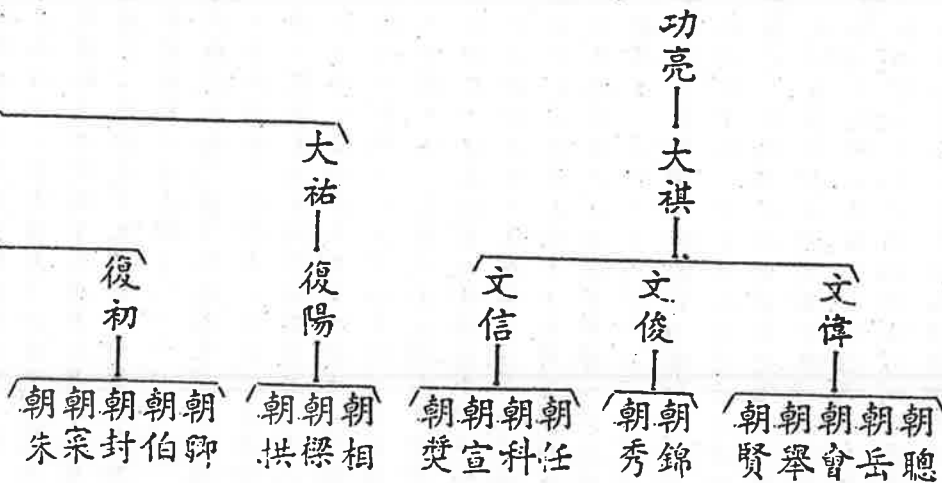 功亮
大祺
文偉
朝聰
朝岳
朝舉
朝賢
文俊
朝錦
朝秀
文信
朝任
朝科
朝宣
朝獎
大祐
復陽
朝相
朝樑
朝拱
復初
朝卿
朝伯
朝封
朝寀
朝朱